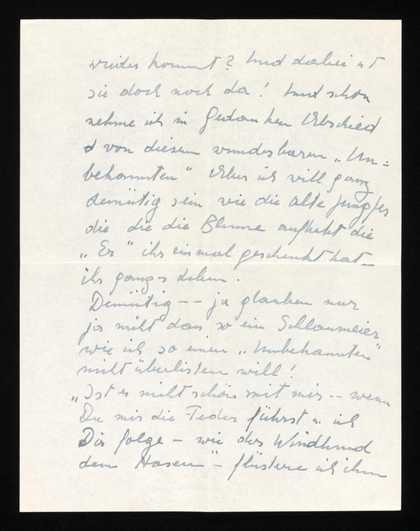 wieder kommt? Und dabei ist
sie doch noch da! Und schon
nehme ich in Gedanken Abschied
von diesem wunderbaren „Un=
bekannten" Aber ich will ganz
demütig sein wie die alte Jungfer
die die die Blume aufhebt die
„Er" ihr einmal geschenkt hat –
ihr ganzes Leben.
Demütig –– ja glauben nur
ja nicht dass so ein Schlaumeier
wie ich so einen „Unbekannten"
nicht überlisten will!
„Ist es nicht schön mit mir – wenn
Du mir die Feder führst u. ich
Dir folge – wie der Windhund
dem Hasen" – flüstere ich ihm